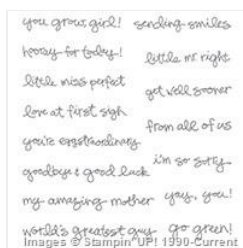 you grow, girl!
sending smiles
hooray for today!
little mr. right
little miss perfect
get well sooner
love at first sigh
from all of us
you're eggstraordinary
i'm so sorry
goodbye & good luck
yay, you!
my amazing mother
world's greatest guy
go green!
Images © Stampin' UP! 1990-Current